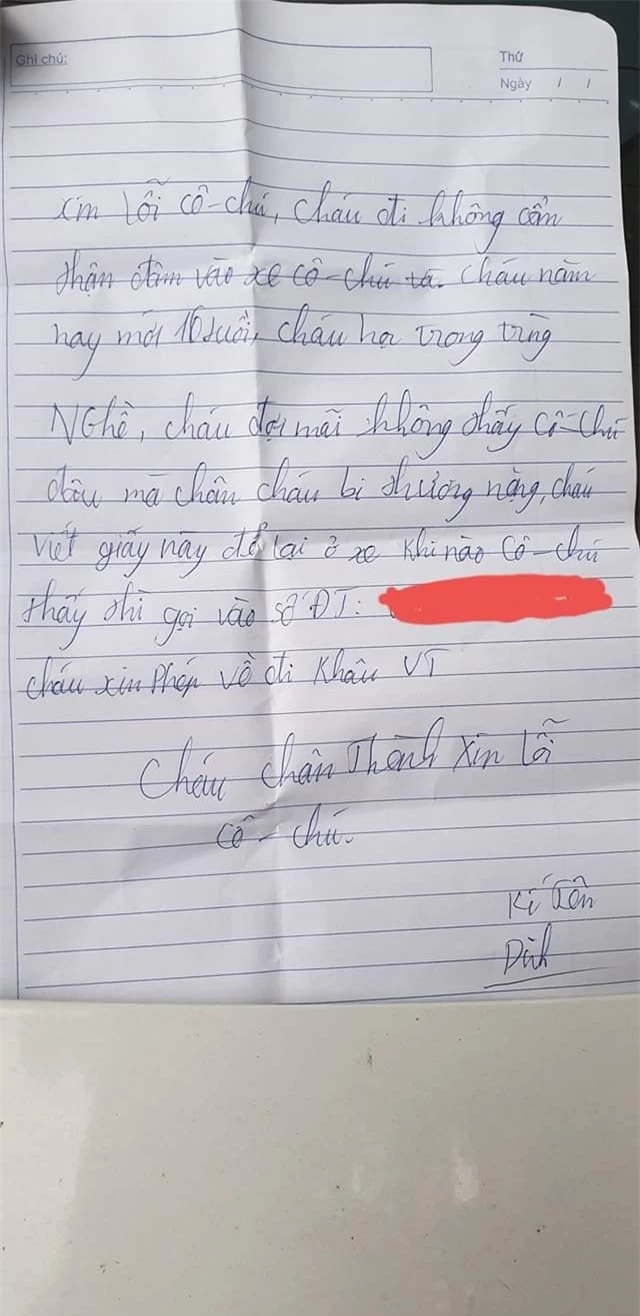 Ghi chú:
Thứ
Ngày / /
xin lỗi cô-chú, cháu đi không cẩn
thận đâm vào xe cô-chú cháu năm
nay mới 16 tuổi, cháu học trong trường
NGhề, cháu đợi mãi không thấy cô-chú
đâu mà chân cháu bị thương nặng, cháu
viết giấy này để lại ở xe khi nào cô-chú
thấy thì gọi vào số ĐT:
cháu xin phép về đi khâu VT
cháu chân Thành xin lỗi
cô - chú.
Kí Tên